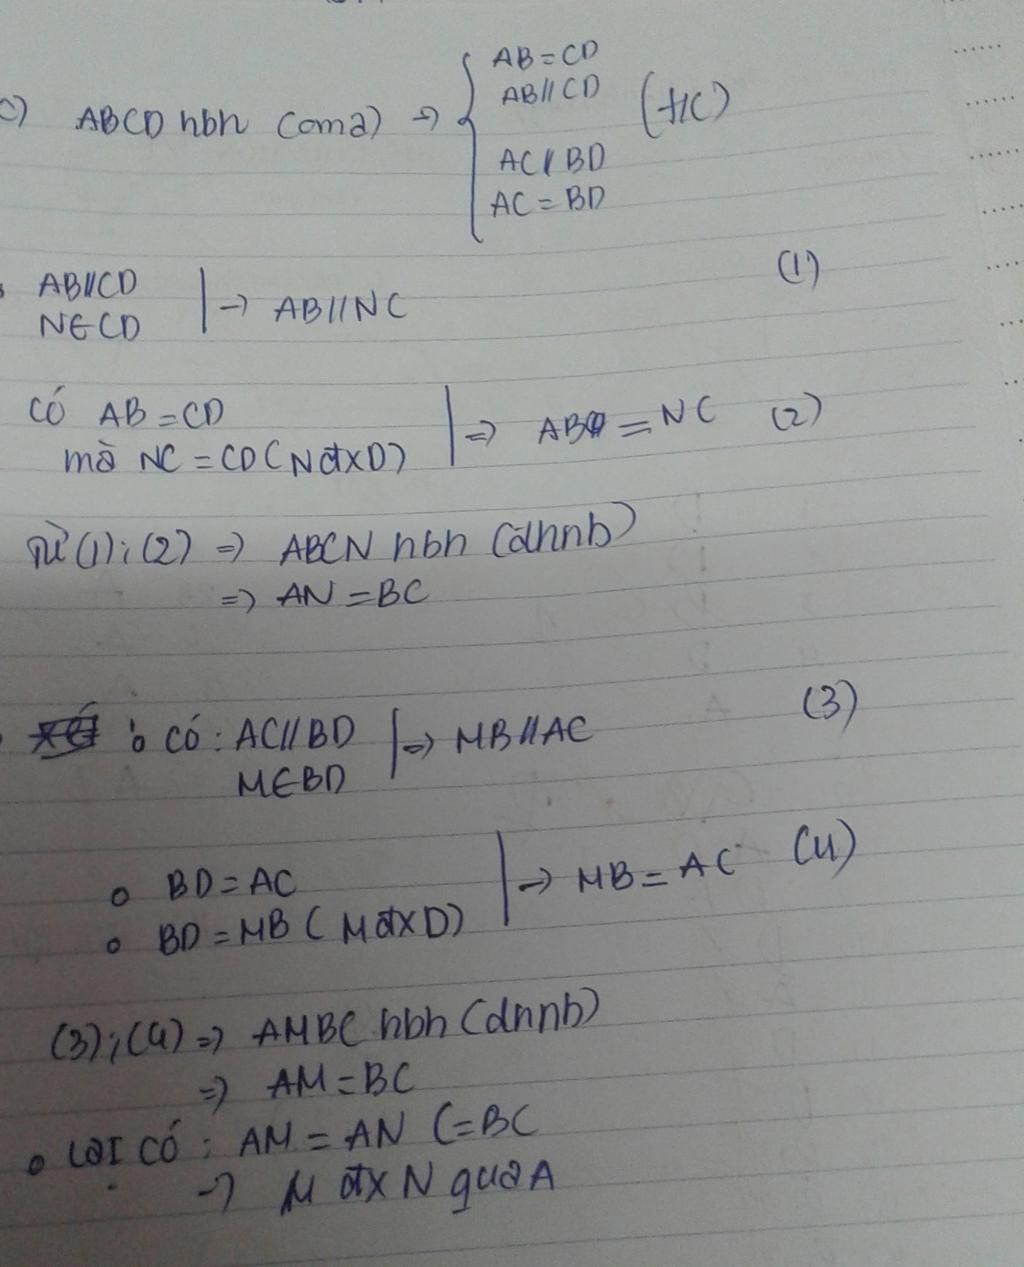 c) ABCD hbh (cma) => { AB = CD
AB // CD
(t/c)
AC // BD
AC = BD
AB // CD
N ∈ CD
→ AB // NC (1)
Có AB = CD
mà NC = CD (N đx D)
=> AB = NC (2)
Từ (1); (2) => ABCN hbh (dhnb)
=> AN = BC
có : AC // BD
M ∈ BD
=> MB // AC (3)
BD = AC
BD = MB (M đx D)
→ MB = AC (4)
(3); (4) => AMBC hbh (dhnb)
=> AM = BC
Lại có : AM = AN (= BC
→ M đx N qua A